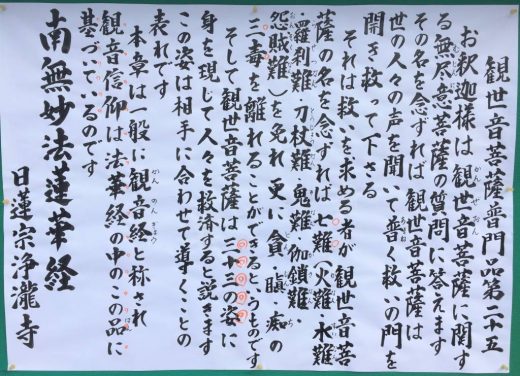 観世音菩薩普門品第二十五
お釈迦様は観世音菩薩に関す
る無尽意菩薩の質問に答えます
その名を念ずれば観世音菩薩は
世の人々の声を聞いて普く救いの門を
開き救って下さる
それは救いを求める者が観世音菩
薩の名を念ずれば七難（火難・水難
・羅刹難・刀杖難・鬼難・伽鎖難・
怨賊難）を免れ更に貪・瞋・痴の
三毒を離れることができるというものです
そして観世音菩薩は三十三の姿に
身を現じて人々を救済すると説きます
この姿は相手に合わせて導くことの
表れです
本章は一般に観音経と称され
観音信仰は法華経の中のこの品に
基づいているのです
南無妙法蓮華経
日蓮宗浄瀧寺